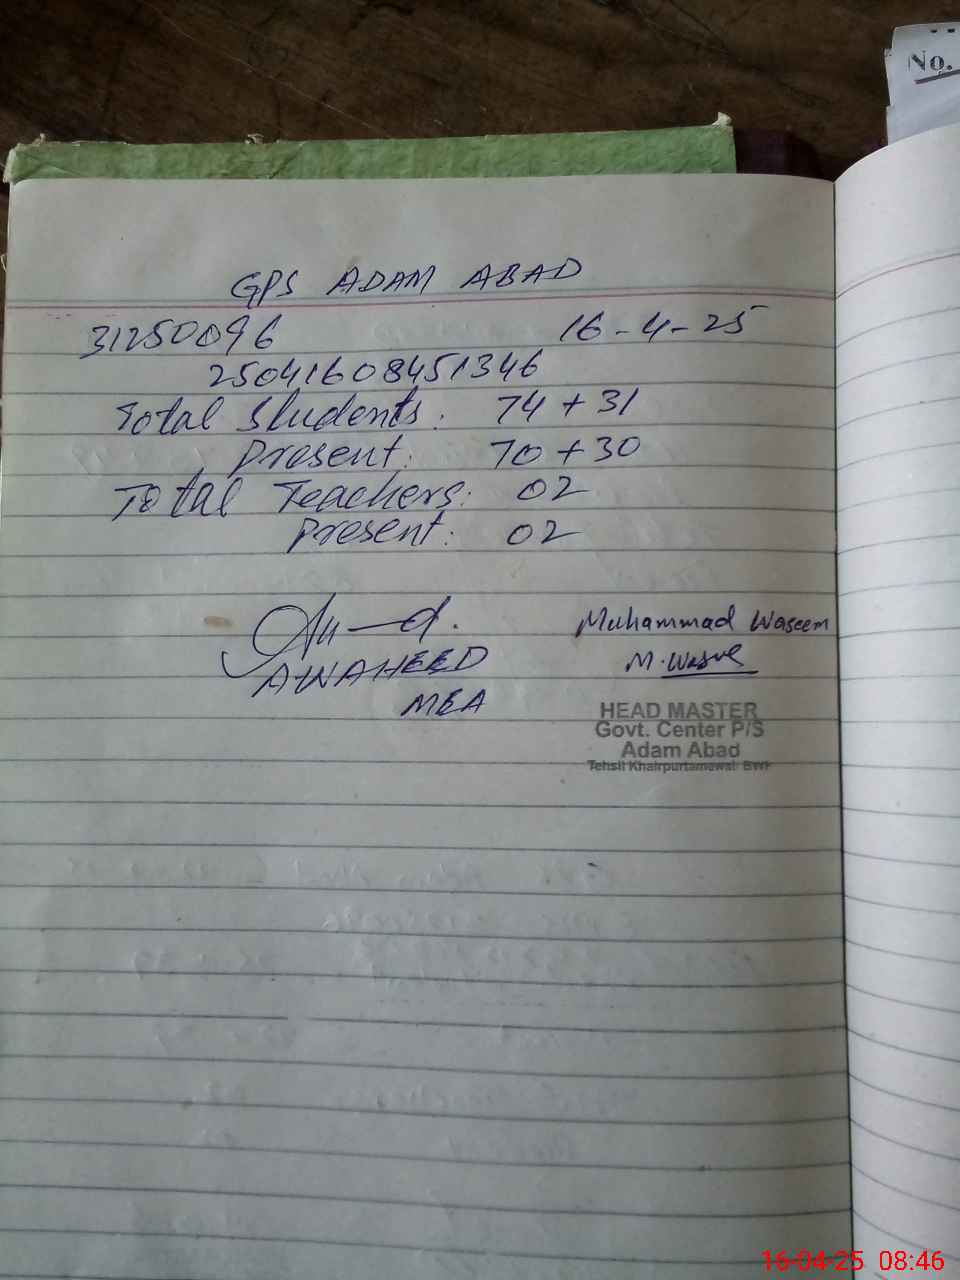 No.
GPS ADAM ABAD
31250096 16-4-25
25041608451346
Total Students: 74+31
Present: 70+30
Total Teachers: 02
Present: 02
Muhammad Waseem
AWAHEED
MEA
HEAD MASTER
Govt. Center P/S
Adam Abad
Tehsil Khairpurtamewali BWP
16-04-25 08:46